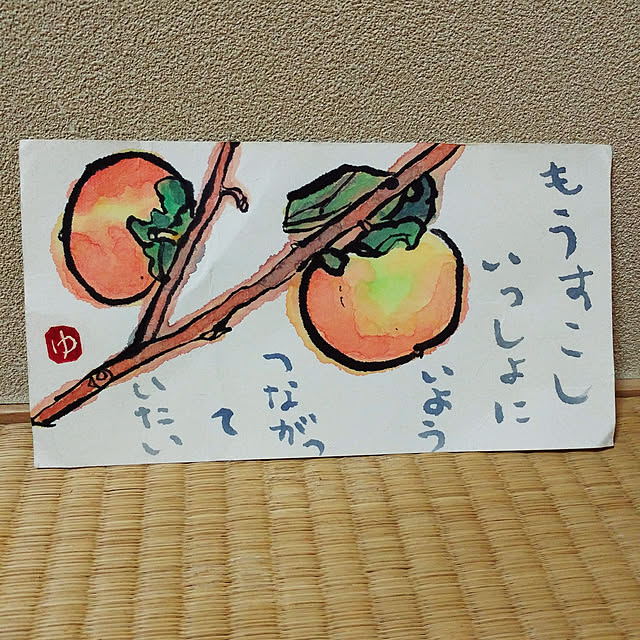 もうすこし
いっしょに
いよう
つながっ
て
いたい
ゆ